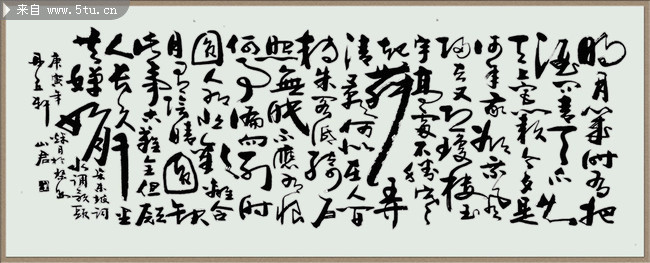 来自 www.5tu.cn
明月幾时有把
酒问青天不知
天上宫阙今夕是
何年我欲乘风
归去又恐琼楼玉
宇高处不胜寒
起舞弄
清影何似在人间
转朱阁低绮户
照無眠不应有恨
何事偏向别时
圆人有悲欢离合
月有阴晴圆缺
此事古难全但愿
人长久千里
共婵娟
苏东坡词
水调歌头
庚寅年秋月於
轩山君